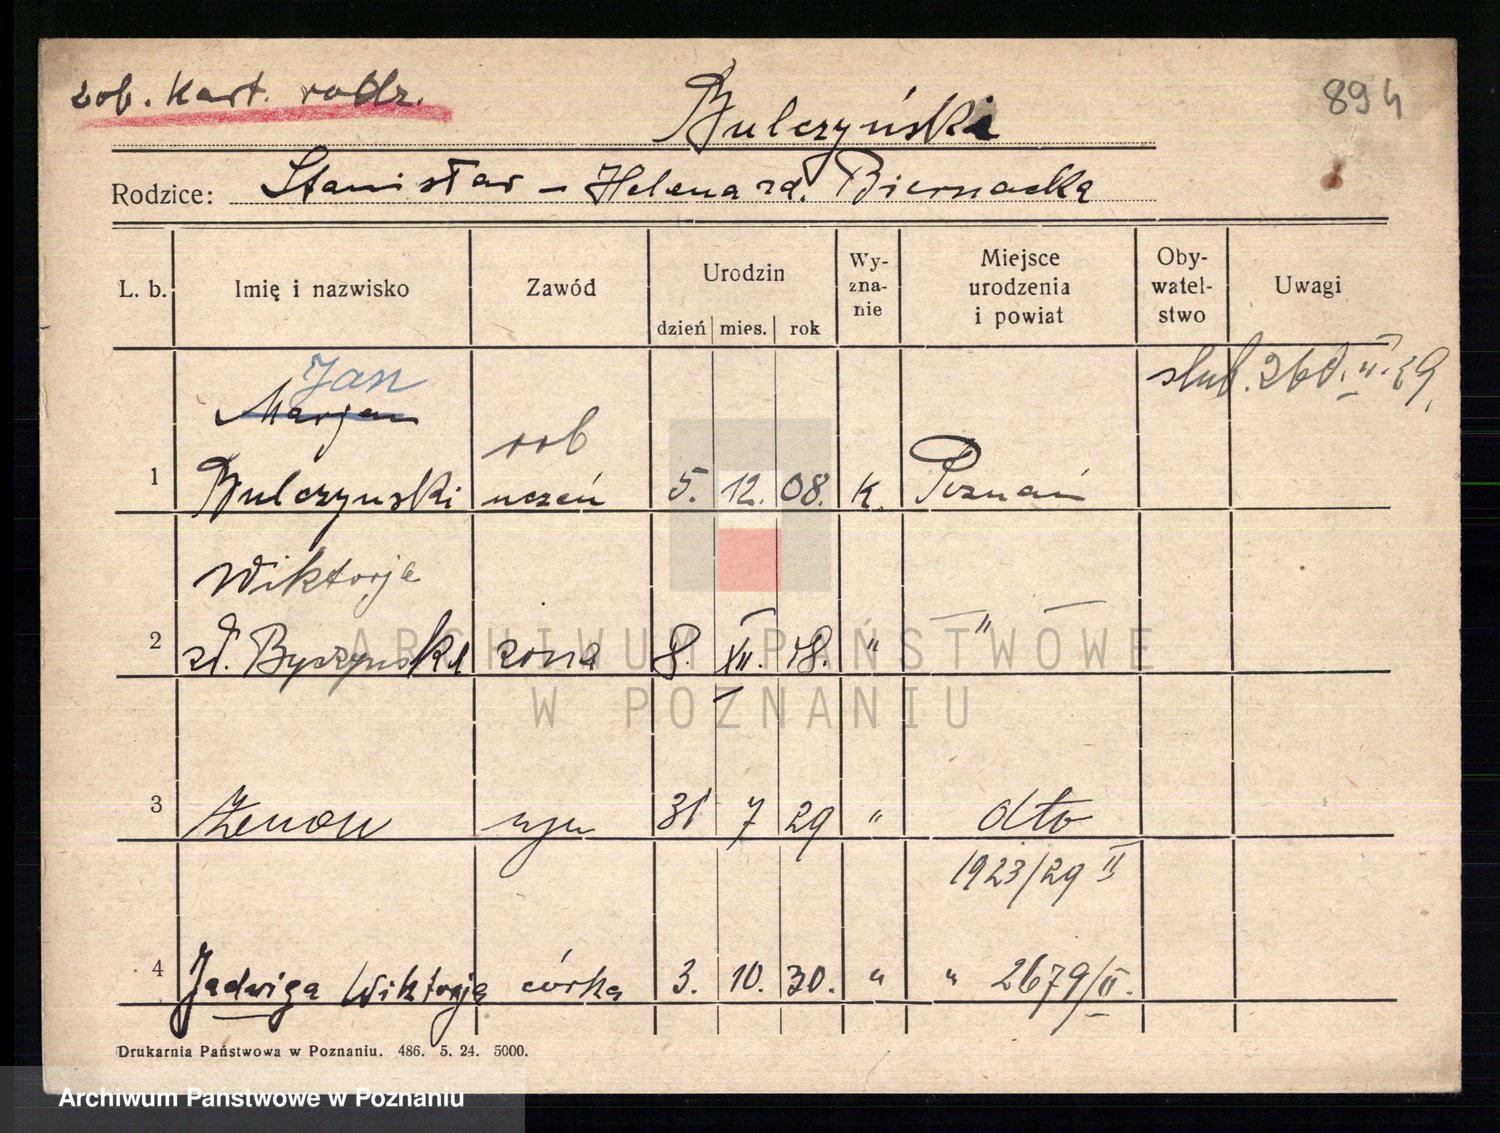 zob. kart. rodz.
894
Bulczyński
Rodzice: Stanisław – Helena zd. Biernacka
L. b. Imię i nazwisko Zawód Urodzin dzień mies. rok Wy-zna-nie Miejsce urodzenia i powiat Oby-watel-stwo Uwagi
Jan
Marjan
rob
1 Bulczynski uczeń 5. 12. 08. k. Poznań
Wiktorja
2 żona 8. XII. " "
3 Zenon syn 31 7 29 " dto
1923/29 II
4 Jadwiga Wiktorja córka 3. 10. 30. " " 2679/II.
Drukarnia Państwowa w Poznaniu. 486. 5. 24. 5000.
ARCHIWUM PAŃSTWOWE
W POZNANIU
Archiwum Państwowe w Poznaniu